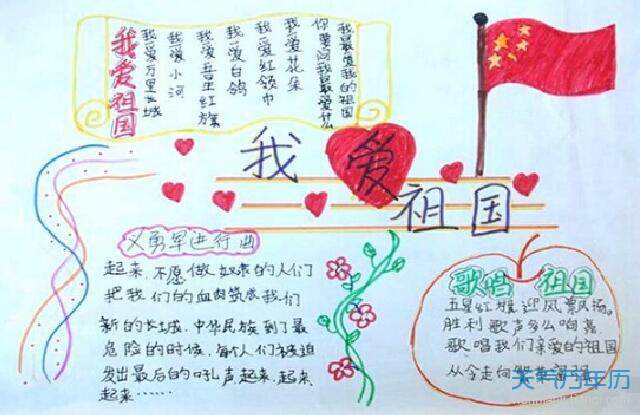 我爱祖国
我的祖国
你要问我最爱什么
我爱花朵
我爱红领巾
我爱白鸽
我爱红旗
我爱小河
我爱万里长城
我爱
祖国
义勇军进行曲
起来,不愿做奴隶的人们
把我们的血肉筑成我们
新的长城,中华民族到了最
危险的时候,每个人们被迫
发出最后的吼声,起来,起来
起来……
歌唱 祖国
五星红旗迎风飘扬。
胜利歌声多么响亮
歌唱我们亲爱的祖国
从今走向
天气万年历